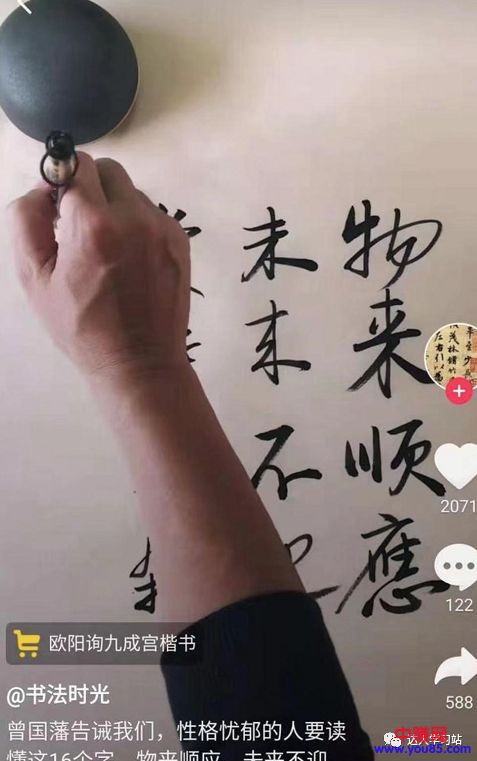 物来顺應
未来不
2071
122
588
欧阳询九成宫楷书
@书法时光
曾国藩告诫我们，性格忧郁的人要读
懂这16个字，物来顺应，未来不迎
中赚网
达人学习站
www.you85.com